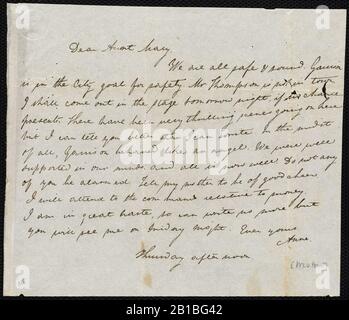 Dear Aunt Mary,
We are all safe & sound Garrison
is in the City goal for safety. Mr Thompson is not in town
I shall come out in the stage tomorrow night, if
presents. There have been very thrilling scenes going on here
but I can tell you better than I can write. In the midst
of all, Garrison behaved like an angel. We were well
supported in our minds and all is now well. Do not any
of you be alarmed. Tell my mother to be of good cheer
I will attend to the command relative to money
I am in great haste, so can write no more but
you will see me on Friday night. Ever yours
Anne.
Thursday afternoon
alamy
Image ID: 2B1BG42
www.alamy.com